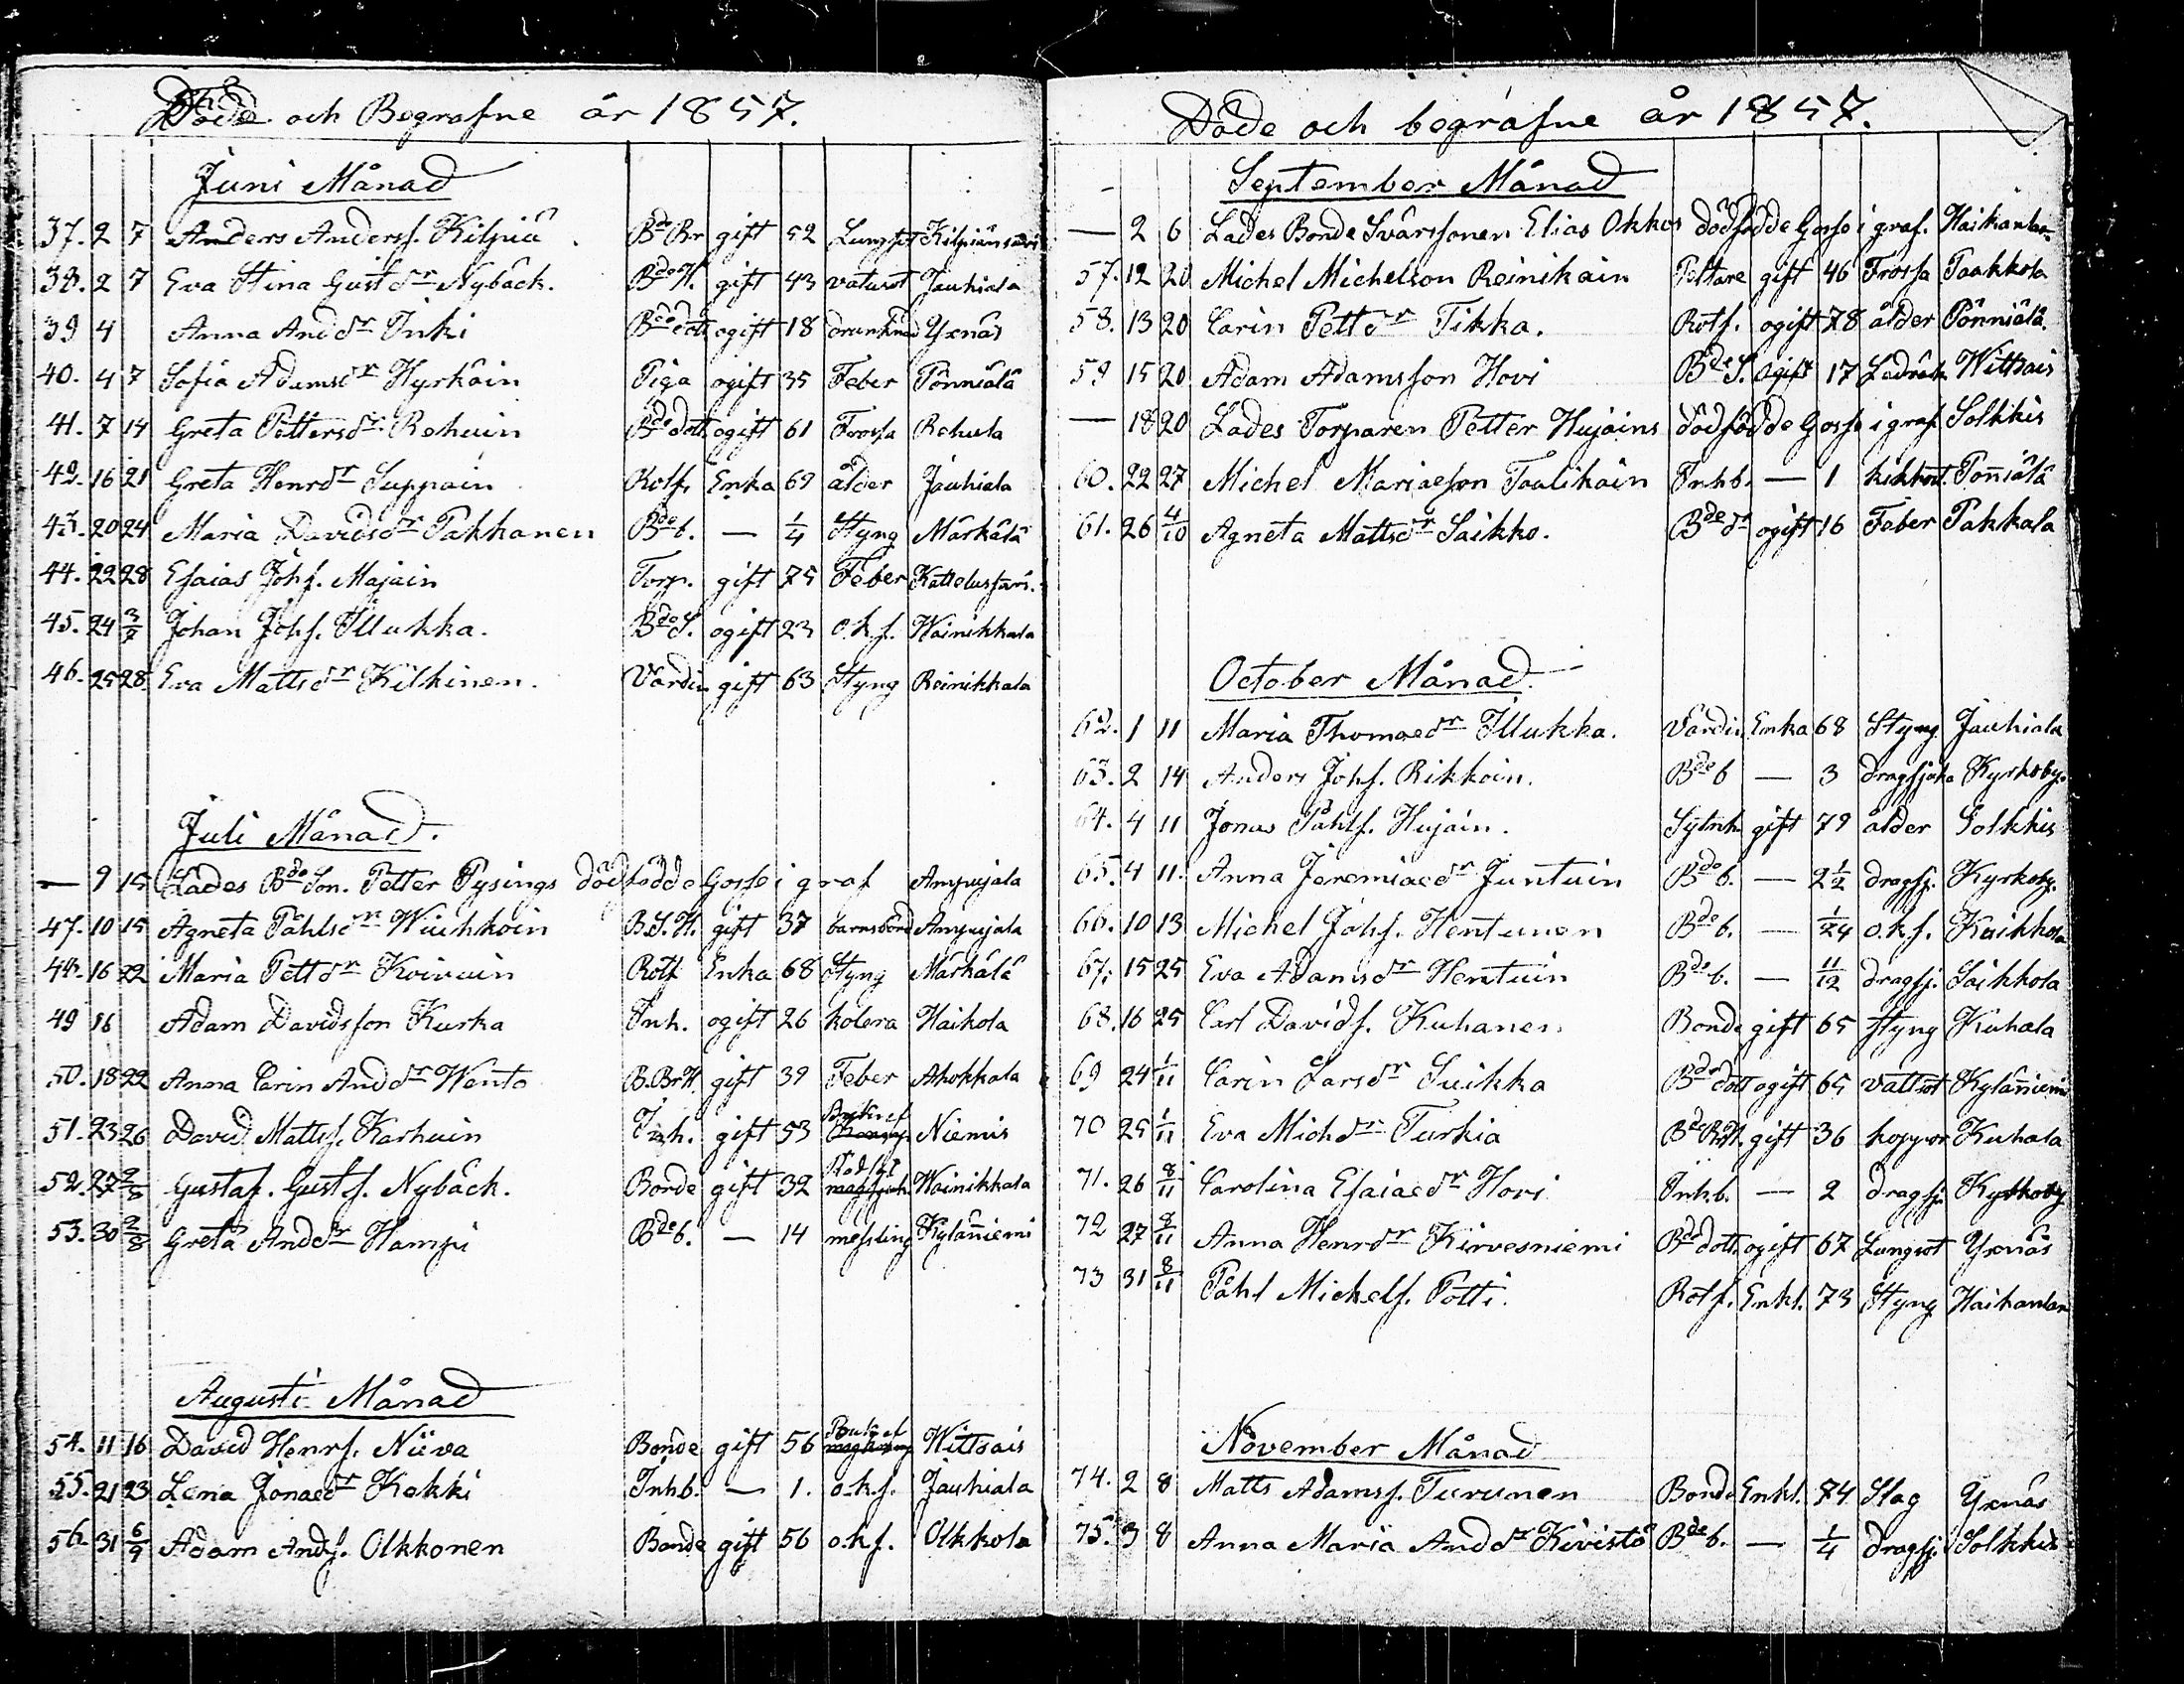 Döde och Begrafne år 1857.
Juni Månad
37. 2 7 Anders Anderss. Kilpiä Bde Br gift 52 Lungsot Kilpiänsaari
38. 2 7 Eva Stina Gustdr Nybäck. Bde H. gift 43 vatusot Jauhiala
39 4 Anna Anddr Inki Bde dott ogift 18 drunknad Yxnäs
40. 4 7 Sofia Adamsdr Hyrkäin Piga ogift 35 Feber Pönniälä
41. 7 14 Greta Pettersdr Rehuin Bde dott ogift 61 Frossa Rehula
42. 16 21 Greta Henrdr Suppain Rotf. Enka 69 ålder Jauhiala
43. 20 24 Maria Davidsdr Pakkanen Bde b. — 1/4 Styng Märkälä
44. 22 28 Esaias Johs. Majain Torp. gift 75 Feber Kattelussaari.
45. 24 3/7 Johan Johs. Illukka. Bde S. ogift 23 o.k.s. Wainikkala
46. 25 28. Eva Mattsdr Kilkinen. Värdin gift 63 Styng Reinikkala
Juli Månad.
— 9 15 Lades Bde Son. Petter Pysings dödfödde Gosse i graf Ampujala
47. 10 15 Agneta Påhlsdr Wiuhkoin B.S.H. gift 37 barnsbörd Ampujala
48. 16 22 Maria Pettdr Koivuin Rotf Enka 68 Styng Märkälä
49 16 Adam Davidsson Kurka Inh. ogift 26 kolera Haikola
50. 18 22 Anna Carin Anddr Wento B.Br.H. gift 39 Feber Ahokkala
51. 23 26 David Mattss. Karhuin Inh. gift 53 Niemis
52. 27 2/8 Gustaf. Gusts. Nybäck. Bonde gift 32 Wainikkala
53. 30 2/8 Greta Anddr Hampu Bde b. — 14 messling Kylänniemi
Augusti Månad
54. 11 16 David Henrs. Niiva Bonde gift 56 Wittsais
55. 21 23 Lena Jonaedr Kekki Inh.b. — 1. o.k.s. Jauhiala
56. 31 6/9 Adam Ands. Olkkonen Bonde gift 56 o.k.s. Olkkola
Döde och begrafne år 1857.
September Månad
— 2 6 Lades Bonde Svärssonen Elias Okkos dödfödde Gosse i graf. Haikanlax
57. 12 20 Michel Michelson Reinikain gift 46 Frossa Paakkola
58. 13 20 Carin Pettdr Tikka. Rotf. ogift 78 ålder Pönniälä
59 15 20 Adam Adamsson Hovi Bde S. ogift 17 Wittsais
— 18 20 Lades Torparen Petter Hujains dödfödde Gosse i graf Solkkis
60. 22 27 Michel Mariaeson Taalikain Inh.b. — 1 kikhost Pönniälä
61. 26 4/10 Agneta Mattsdr Saikko. Bde dr ogift 16 Feber Pakkala
October Månad.
62. 1 11 Maria Thomaedr Illukka. Värdin Enka 68 Styng Jauhiala
63. 2 14 Anders Johs. Rikkoin. Bde b — 3 dragsjuka Kyrkoby.
64. 4 11 Jonas Påhls. Hujain. Sytnh. gift 79 ålder Solkkis
65. 4 11. Anna Jeremiaedr Juntuin Bde b. — 2 1/2 dragsj. Kyrkoby.
66. 10 13 Michel Johs. Hentunen Bde b. — 1/24 o.k.s. Kaikkola
67. 15 25 Eva Adamsdr Hentuin Bde b. — 11/12 dragsj. Saikkola
68. 16 25 Carl Davids. Kuhanen Bonde gift 65 Styng Kuhala
69 24 1/11 Carin Larsdr Suikka Bde dott ogift 65 vattsot Kylänniemi
70 25 1/11 Eva Michdr Turkia Bde Br.H. gift 36 koppor Kuhala
71. 26 8/11 Carolina Esaiaedr Hovi Inh.b. — 2 dragsj. Kyrkoby
72 27 8/11 Anna Henrdr Kirvesniemi Bde dott ogift 67 Lungsot Yxnäs
73 31 8/11 Påhl Michels. Potti. Rotf. Enkl. 73 Styng Haikanlax
November Månad
74. 2 8 Matts Adamss. Turunen Bonde Enkl. 74 Slag Yxnäs
75. 3 8 Anna Maria Anddr Kivistö Bde b. — 1/4 dragsj. Solkkis